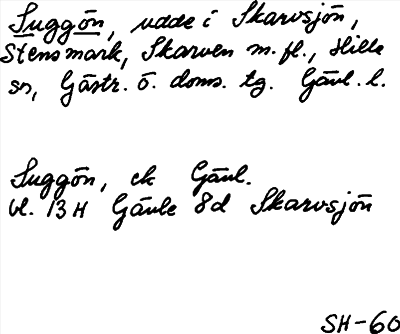 Suggön, udde i Skarvsjön,
Stensmark, Skarven m. fl., Hille
sn, Gästr. ö. doms. tg. Gävl. l.
Suggön, ek Gävl.
bl. 13 H Gävle 8d Skarvsjön
SH-60